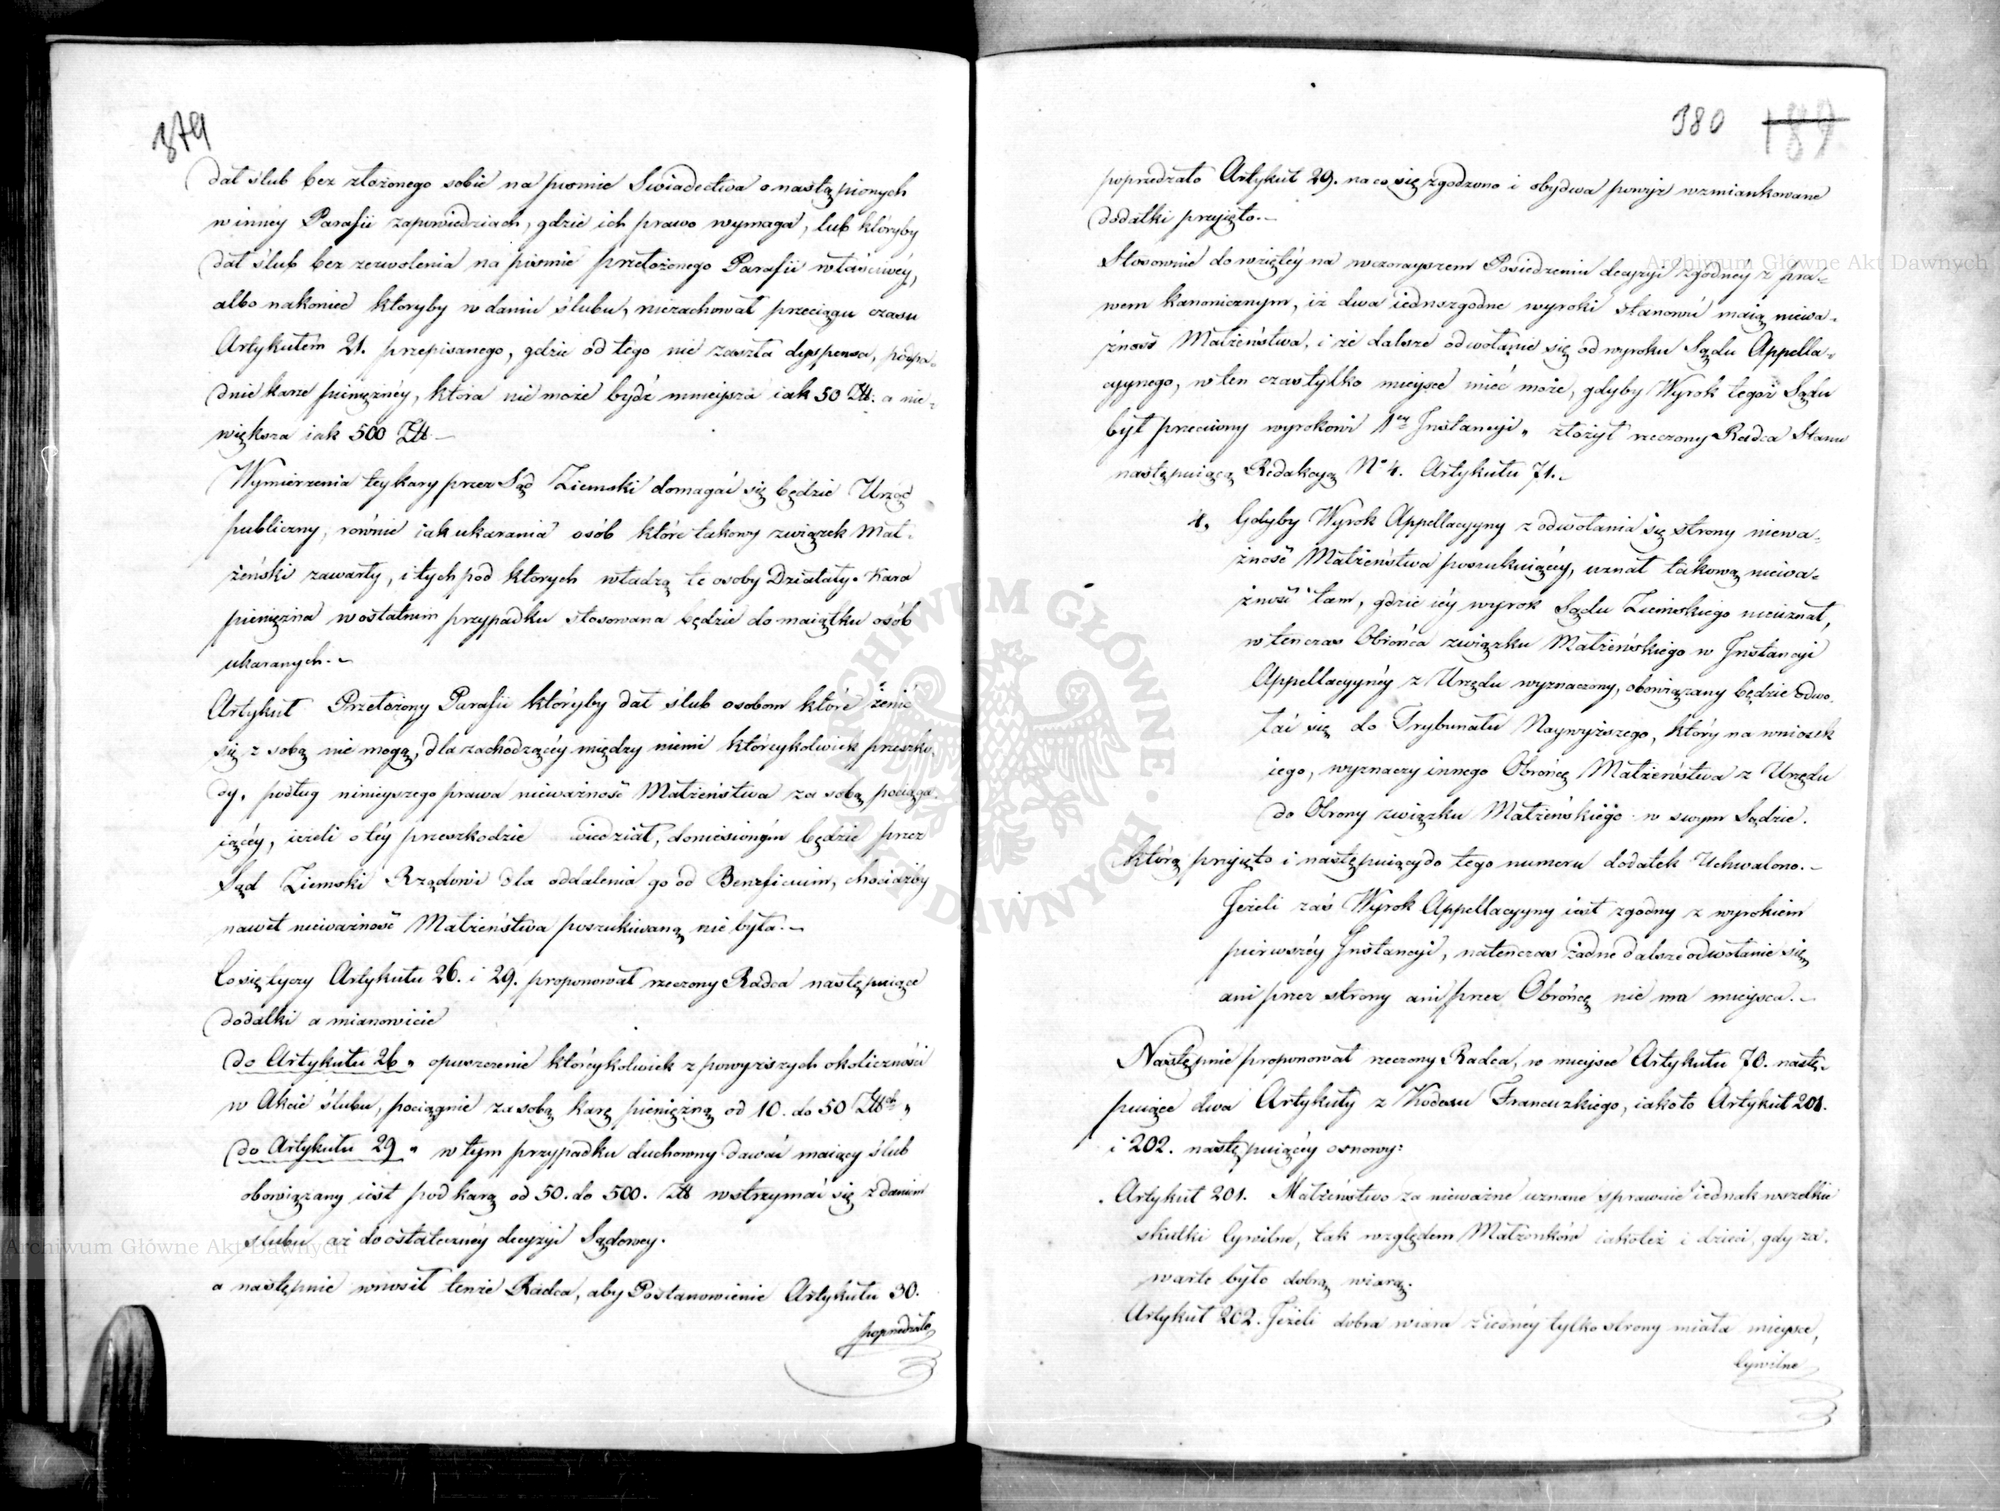 379
dał ślub bez złożonego sobie na piśmie Swiadectwa o nastąpionych
w innéy Parafii zapowiedziach, gdzie ich prawo wymaga, lub któryby
dał ślub bez zezwolenia na piśmie przełożonego Parafii właściwéy,
albo nakoniec któryby w daniu ślubu, niezachował przeciągu czasu
Artykułem 21. przepisanego, gdzie od tego nie zaszła dyspensa, podpa-
dnie karze pieniężnéy, która nie może bydź mnieysza iak 50 Złł: a nie-
większa iak 500 Złł.
Wymierzenia téy kary przez Sąd Ziemski domagać się będzie Urząd
publiczny, równie iak ukarania osób które takowy związek Mał-
żeński zawarły, i tych pod których władzą te osoby Działały. Kara
pieniężna w ostatnim przypadku stosowana będzie do maiątku osób
ukaranych.
Artykuł Przełożony Parafii któryby dał ślub osobom które żenić
się z sobą nie mogą, dla zachodzącéy między niemi któreykolwiek przeszko
dy, podług ninieyszego prawa nieważność Małżeństwa za sobą pociąga
iącéy, ieżeli o téy przeszkodzie wiedział, doniesionym będzie przez
Sąd Ziemski Rządowi dla oddalenia go od Beneficium, chociażby
nawet nieważność Małżeństwa poszukiwaną nie była.
Co się tyczy Artykułu 26. i 29. proponował rzeczony Radca następuiące
dodatki a mianowicie
do Artykułu 26 „ opuszczenie któréykolwiek z powyższych okoliczności
w Akcie ślubu, pociągnie za sobą karę pieniężną od 10. do 50 Złłch „
do Artykułu 29 „ w tym przypadku duchowny dawać maiący ślub
obowiązany iest pod karą od 50. do 500. Złł wstrzymać się z daniem
ślubu aż do ostatecznéy decyzyi Sądowey.
a następnie wnosił tenże Radca, aby Postanowienie Artykułu 30.
poprzedzało
380 189
poprzedzało Artykuł 29. na co się zgodzono i obydwa powyż wzmiankowane
dodatki przyięto.
Stosownie do wziętéy na wczorayszem Posiedzeniu decyzyi zgodnéy z pra-
wem kanonicznym, iż dwa iednozgodne wyroki stanowić maią nieważ-
żność Małżeństwa, i że dalsze odwołanie się od wyroku Sądu Appella-
cyynego, w ten czas tylko mieysce mieć może, gdyby Wyrok tegoż Sądu
był przeciwny wyrokowi 1ey Instancyi „ złożył rzeczony Radca Stanu
następuiącą Redakcyą No 4. Artykułu 71.
4. Gdyby Wyrok Appellacyyny z odwołania się strony niewa-
żność Małżeństwa poszukuiącéy, uznał takową niewa-
żność tam, gdzie iéy wyrok Sądu Ziemskiego nieuznał,
w tenczas Obrońca związku Małżeńskiego w Instancyi
Appellacyynéy z Urzędu wyznaczony, obowiązany będzie odwo-
łać się do Trybunału Naywyższego, który na wniosek
iego, wyznaczy innego Obrońcę Małżeństwa z Urzędu
do Obrony związku Małżeńskiégo w swym Sądzie.
którą przyięto i następuiący do tego numeru dodatek Uchwalono.
Jeżeli zaś Wyrok Appellacyyny iest zgodny z wyrokiem
pierwszéy Instancyi, natenczas żadne dalsze odwołanie się
ani przez strony ani przez Obrońcę nie ma mieysca.
Następnie proponował rzeczony Radca, w mieysce Artykułu 70. nastę-
puiące dwa Artykuły z Kodexu Francuzkiego, iakoto Artykuł 201.
i 202. następuiącéy osnowy:
Artykuł 201. Małżeństwo za nieważne uznane sprawuie iednak wszelkie
skutki Cywilne, tak względem Małżonków iakoteż i dzieci, gdy za-
warte było dobrą wiarą.
Artykuł 202. Jeżeli dobra wiara z iednéy tylko strony miała mieysce,
Cywilne
Archiwum Główne Akt Dawnych
Archiwum Główne Akt Dawnych
ARCHIWUM GŁÓWNE · AKT DAWNYCH ·